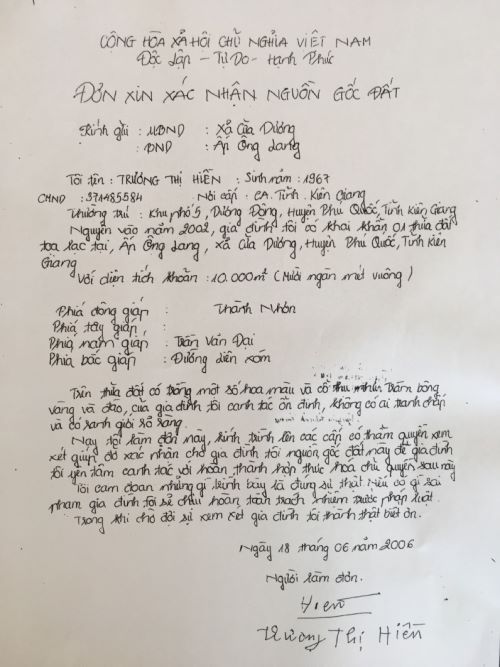 CỘNG HÒA XẢ HỘI CHỦ NGHỈA VIỆT NAM
Độc Lập - Tự Do - Hạnh Phúc
ĐƠN XIN XÁC NHẬN NGUỒN GỐC ĐẤT
Kính gửi : UBND : Xả Cửa Dương
: BND : Ấp Ông Lang
Tôi tên : TRƯƠNG THỊ HIỀN . Sinh năm : 1967
CMND : 371485584 Nơi cấp : CA. Tỉnh. Kiên Giang
Thường trú : Khu phố 5, Dương Đông, Huyện Phú Quốc, Tỉnh Kiên Giang
Nguyên vào năm 2002, gia đình tôi có khai khẩn 01 thửa đất
tọa lạc tại, Ấp Ông Lang, xả Cửa Dương, Huyện Phú Quốc, Tỉnh Kiên
Giang
Với diện tích khoản : 10.000m² (Mười ngàn mét vuông)
Phiá đông giáp : Thành Nhơn
Phiá tây giáp :
Phiá nam giáp : Trần Văn Đại
Phiá bắc giáp : Đường liên xóm
Trên thửa đất có trồng một số hoa màu và cổ thụ như: Tràm bông
vàng và đào, của gia đình tôi canh tác ổn định, không có ai tranh chấp
và có ranh giới rỏ ràng.
Nay tôi làm đơn này, kính trình lên các cấp có thẩm quyền xem
xét giúp đở xác nhận cho gia đình tôi nguồn gốc đất này để gia đình
tôi yên tâm canh tác với hoàn thành hợp thức hoá chủ quyền sau này
Tôi cam đoan những gì trình bày là đúng sự thật nếu có gì sai
phạm gia đình tôi sẽ chịu hoàn toàn trách nhiệm trước pháp luật.
Trong khi chờ đợi sự xem xét gia đình tôi thành thật biết ơn.
Ngày 18 tháng 06 năm 2006
Người làm đơn.
Hiền
Trương Thị Hiền